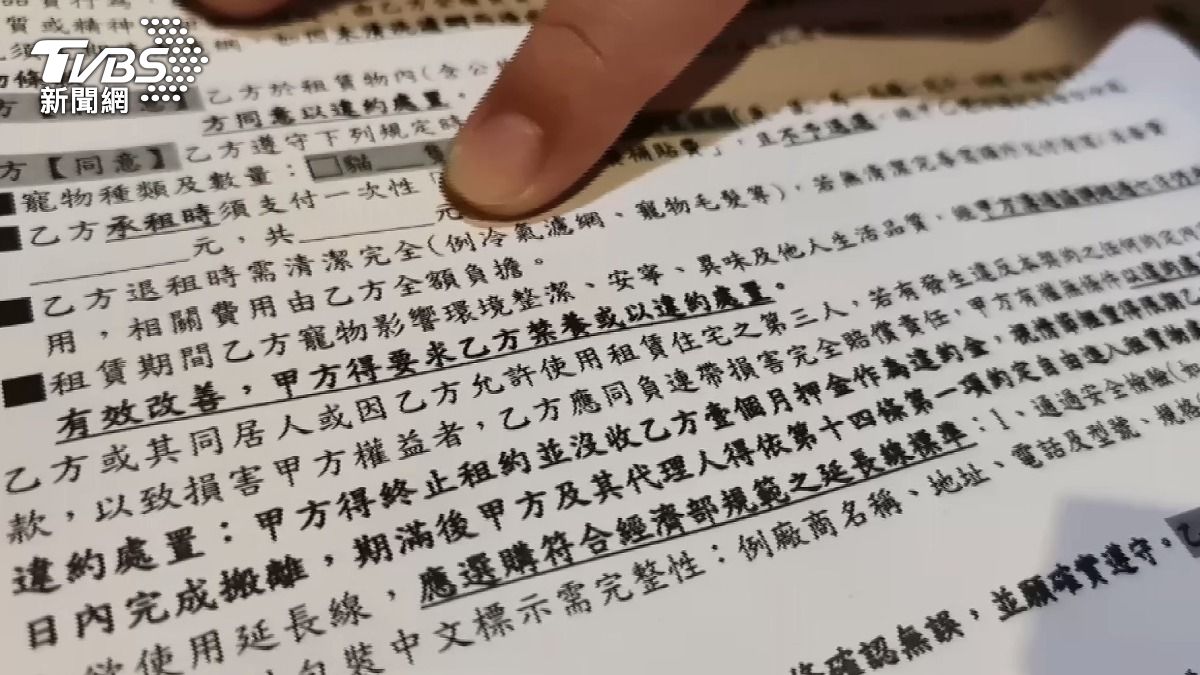 TVBS
新聞網
質或精神
乙方於租賃物內(含公
方同意以違約處置。
方【同意】乙方遵守下列規定時
■寵物種類及數量：□貓 隻
補貼費了，且不予退還
■乙方承租時須支付一次性
元，共 元
■乙方退租時需清潔完全(例冷氣濾網、寵物毛髮等)，若無清潔完善需
用，相關費用由乙方全額負擔。
■租賃期間乙方寵物影響環境整潔、安寧、異味及他人生活品質，經甲方
有效改善，甲方得要求乙方禁養或以違約處置。
乙方或其同居人或因乙方允許使用租賃住宅之第三人，若有發生違反本契約之任何約定
款，以致損害甲方權益者，乙方應同負連帶損害完全賠償責任，甲方有權無條件以違約處
違約處置：甲方得終止租約並沒收乙方壹個月押金作為違約金，視情節輕重得限期乙
日內完成搬離，期滿後甲方及其代理人得依第十四條第一項約定自由進入租賃物
欲使用延長線，應選購符合經濟部規範之延長線標準：1、通過安全檢驗(如
包裝中文標示需完整性：例廠商名稱、地址、電話及型號、規格
確認無誤，並願確實遵守。乙